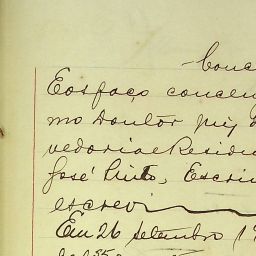 Conc
E os faço concl
mo Doutor Juiz d
vedoria e Residu
José Pinto, Escri
escrevi
Em 26 setembro 19